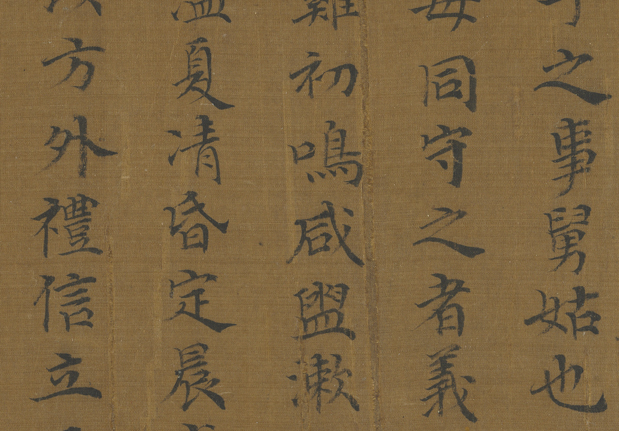 子之事舅姑也
毋同守之者義
雞初鳴咸盥漱
溫夏凊昏定晨
方外禮信立